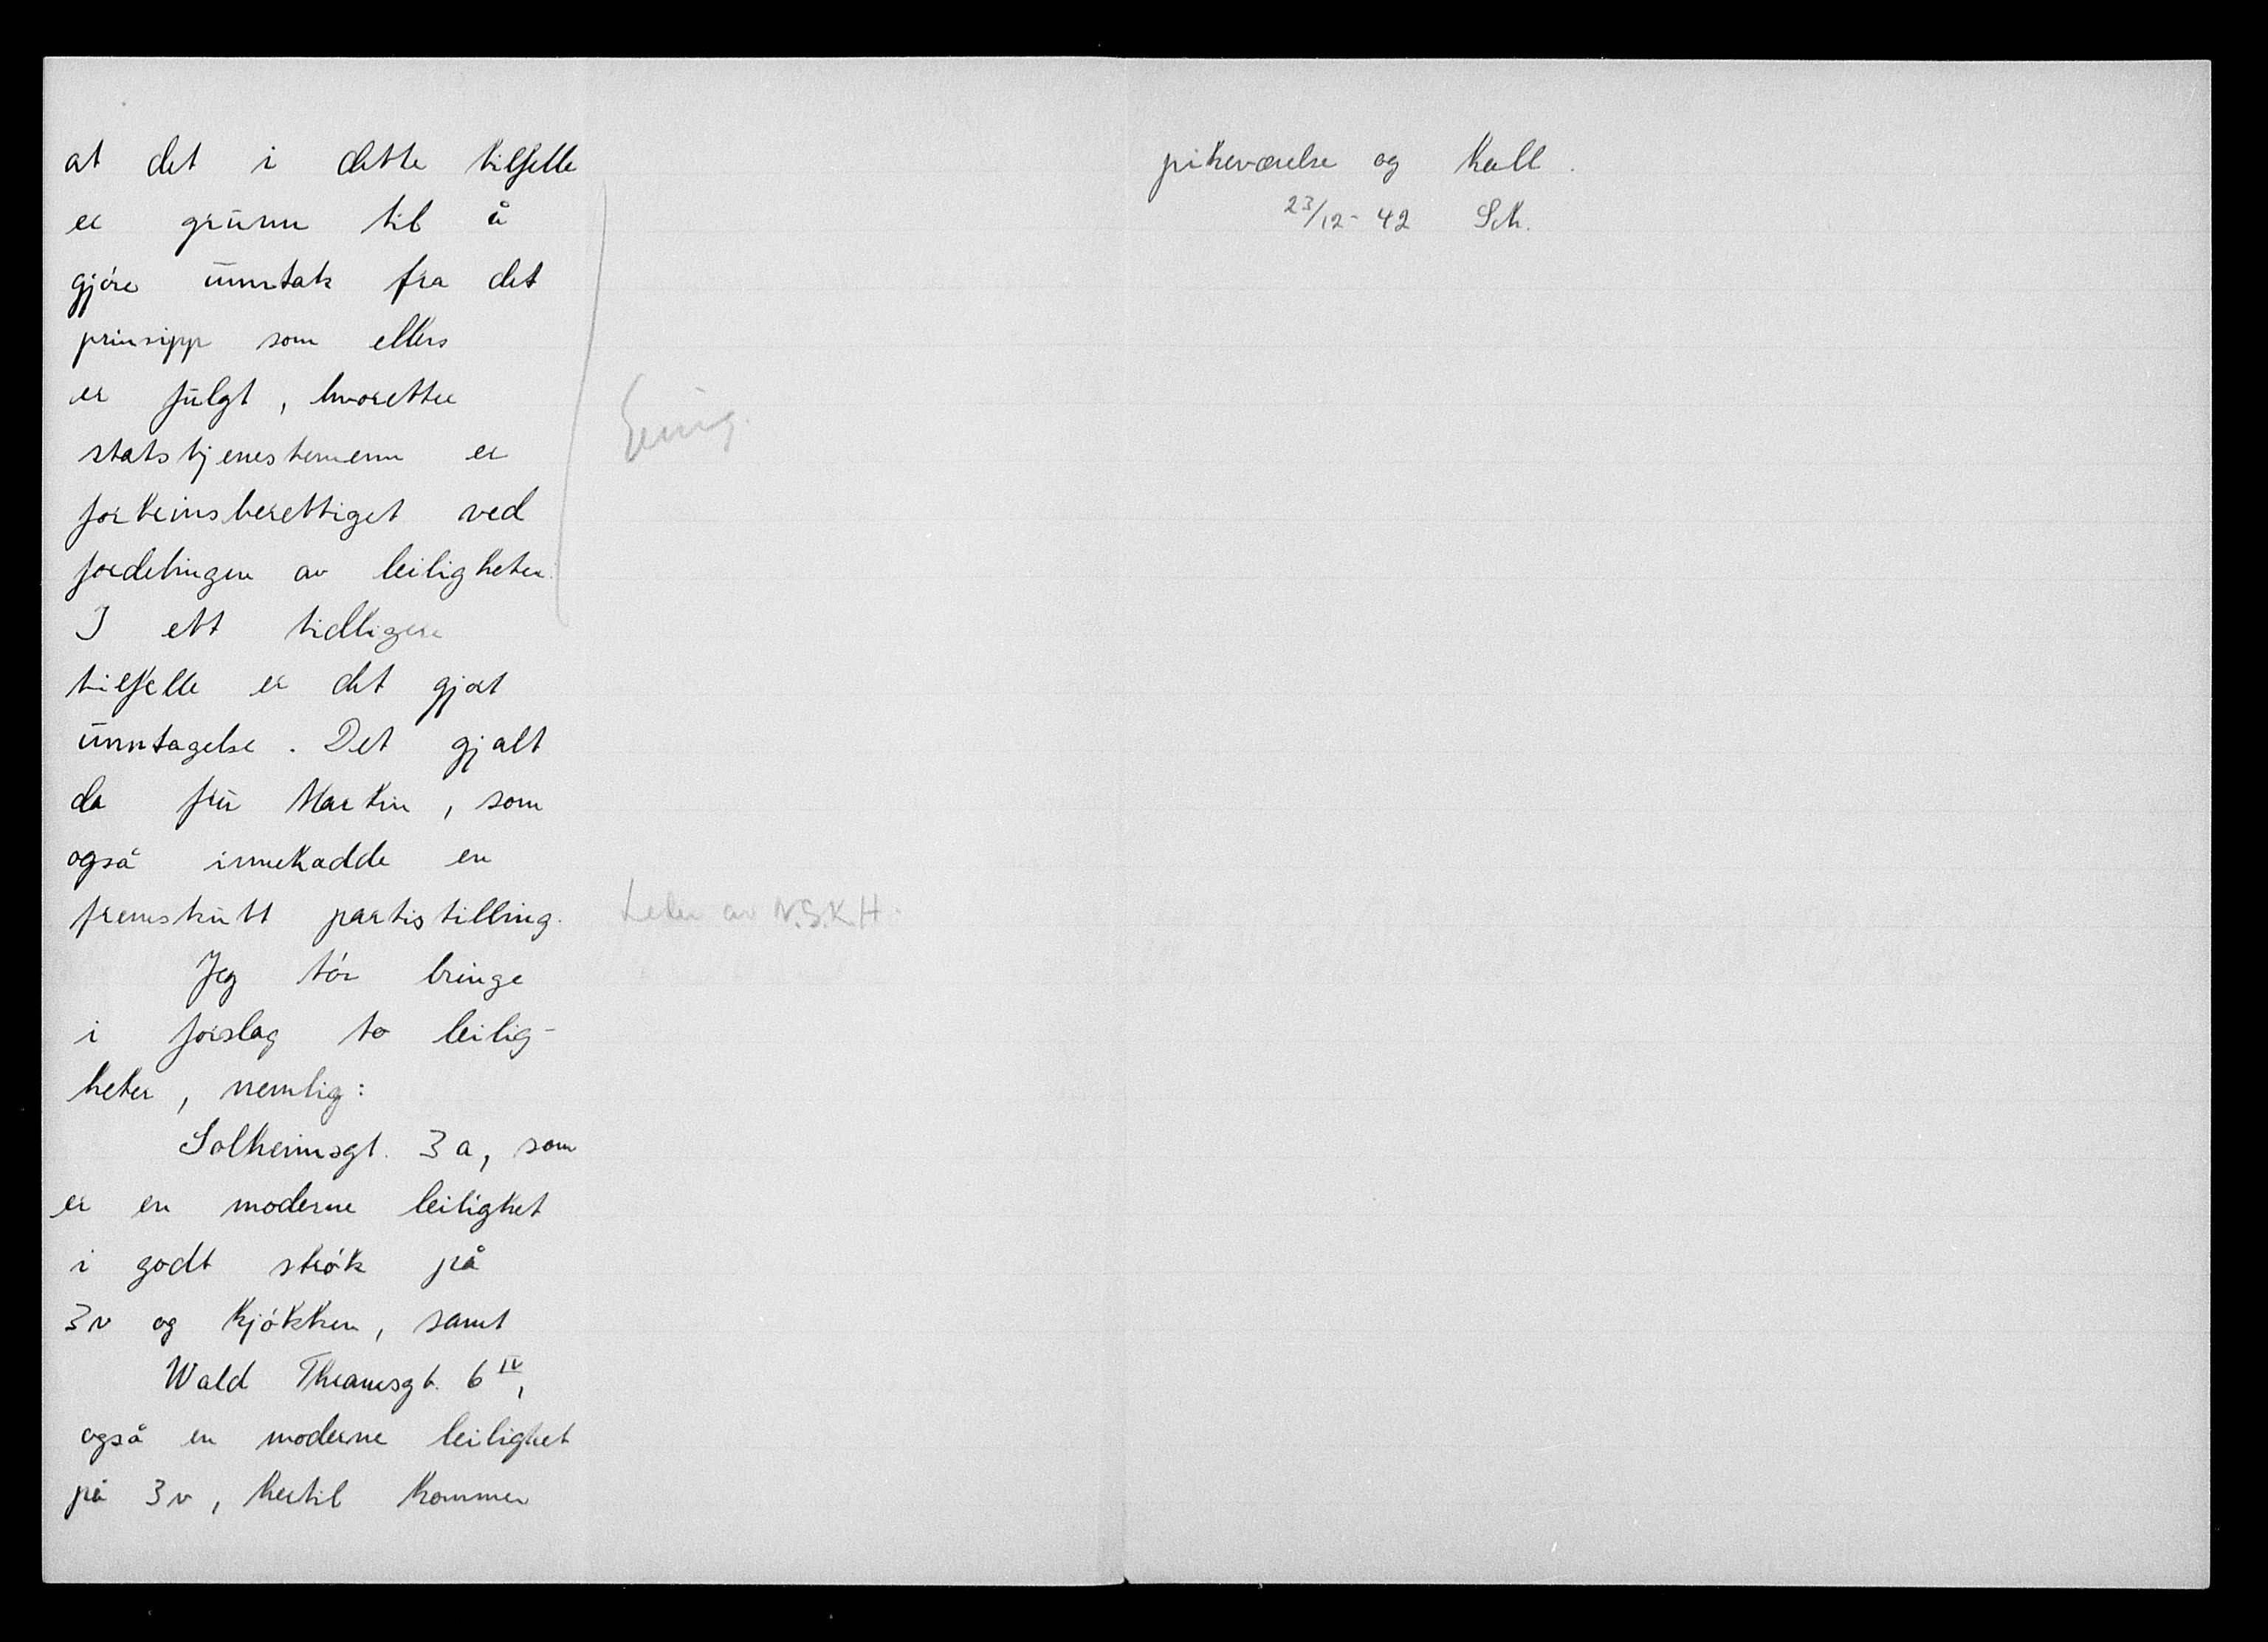 at det i dette tilfelle
er grunn til å
gjøre unntak fra det
prinsipp som ellers
er fulgt, hvoretter
statstjenestemenn er
fortrinsberettiget ved
fordelingen av leiligheter.
I ett tidligere
tilfelle er det gjort
unntagelse. Det gjalt
da fru Martin, som
også innehadde en
fremskutt partistilling.
Leder av N.S.K.H.
Jeg tør bringe
i forslag to leilig-
heter, nemlig:
Solheimsgt. 3a, som
er en moderne leilighet
i godt strøk på
3v og kjøkken, samt
Wald Thranesgt. 6 IV,
også en moderne leilighet
på 3v, hertil kommer
pikeværelse og hall.
23/12-42 Sch.